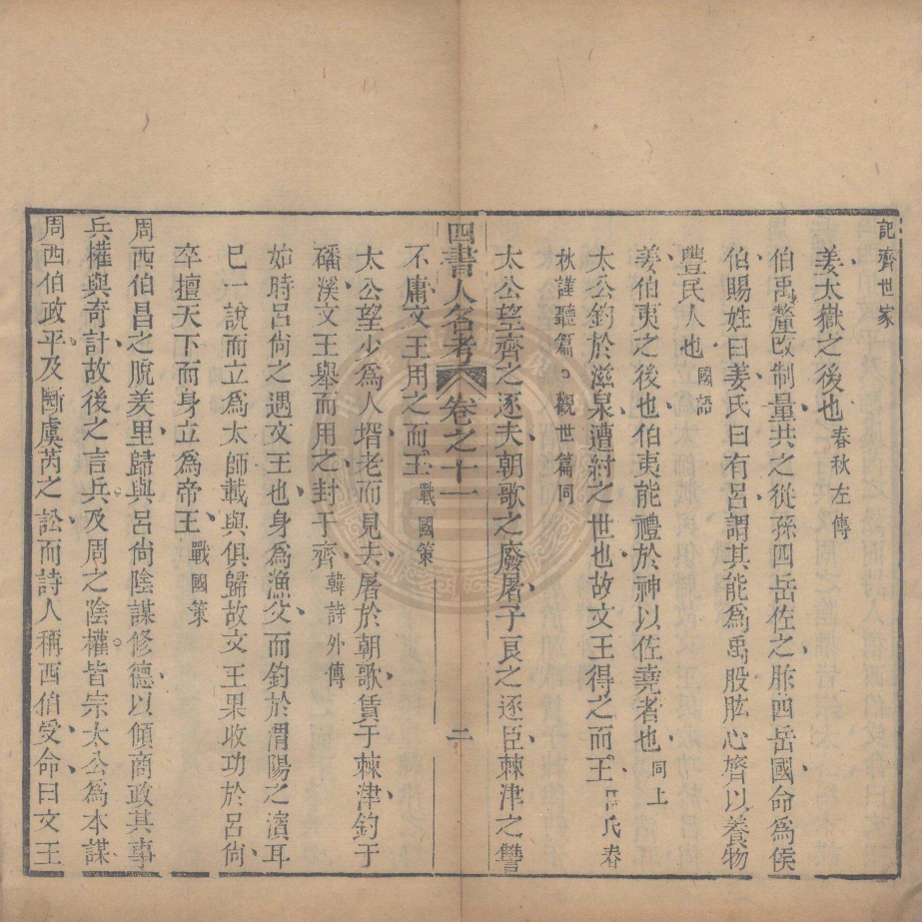 記齊世家
姜太嶽之後也春秋左傳
伯禹釐改制量共之從孫四岳佐之胙四岳國命爲侯
伯賜姓曰姜氏曰有呂謂其能爲禹股肱心膂以養物
豐民人也國語
姜伯夷之後也伯夷能禮於神以佐堯者也同上
太公釣於滋泉遭紂之世也故文王得之而王呂氏春
秋謹聽篇觀世篇同
太公望齊之逐夫朝歌之廢屠子良之逐臣棘津之讐
四書人名考 卷之十一 二
不庸文王用之而王戰國策
太公望少爲人壻老而見去屠於朝歌賃于棘津釣于
磻溪文王舉而用之封于齊韓詩外傳
始時呂尙之遇文王也身爲漁父而釣於渭陽之濱耳
已一說而立爲太師載與俱歸故文王果收功於呂尙
卒擅天下而身立爲帝王戰國策
周西伯昌之脫羑里歸與呂尙陰謀修德以傾商政其事
兵權與奇計故後之言兵及周之陰權皆宗太公爲本謀
周西伯政平及斷虞芮之訟而詩人稱西伯受命曰文王